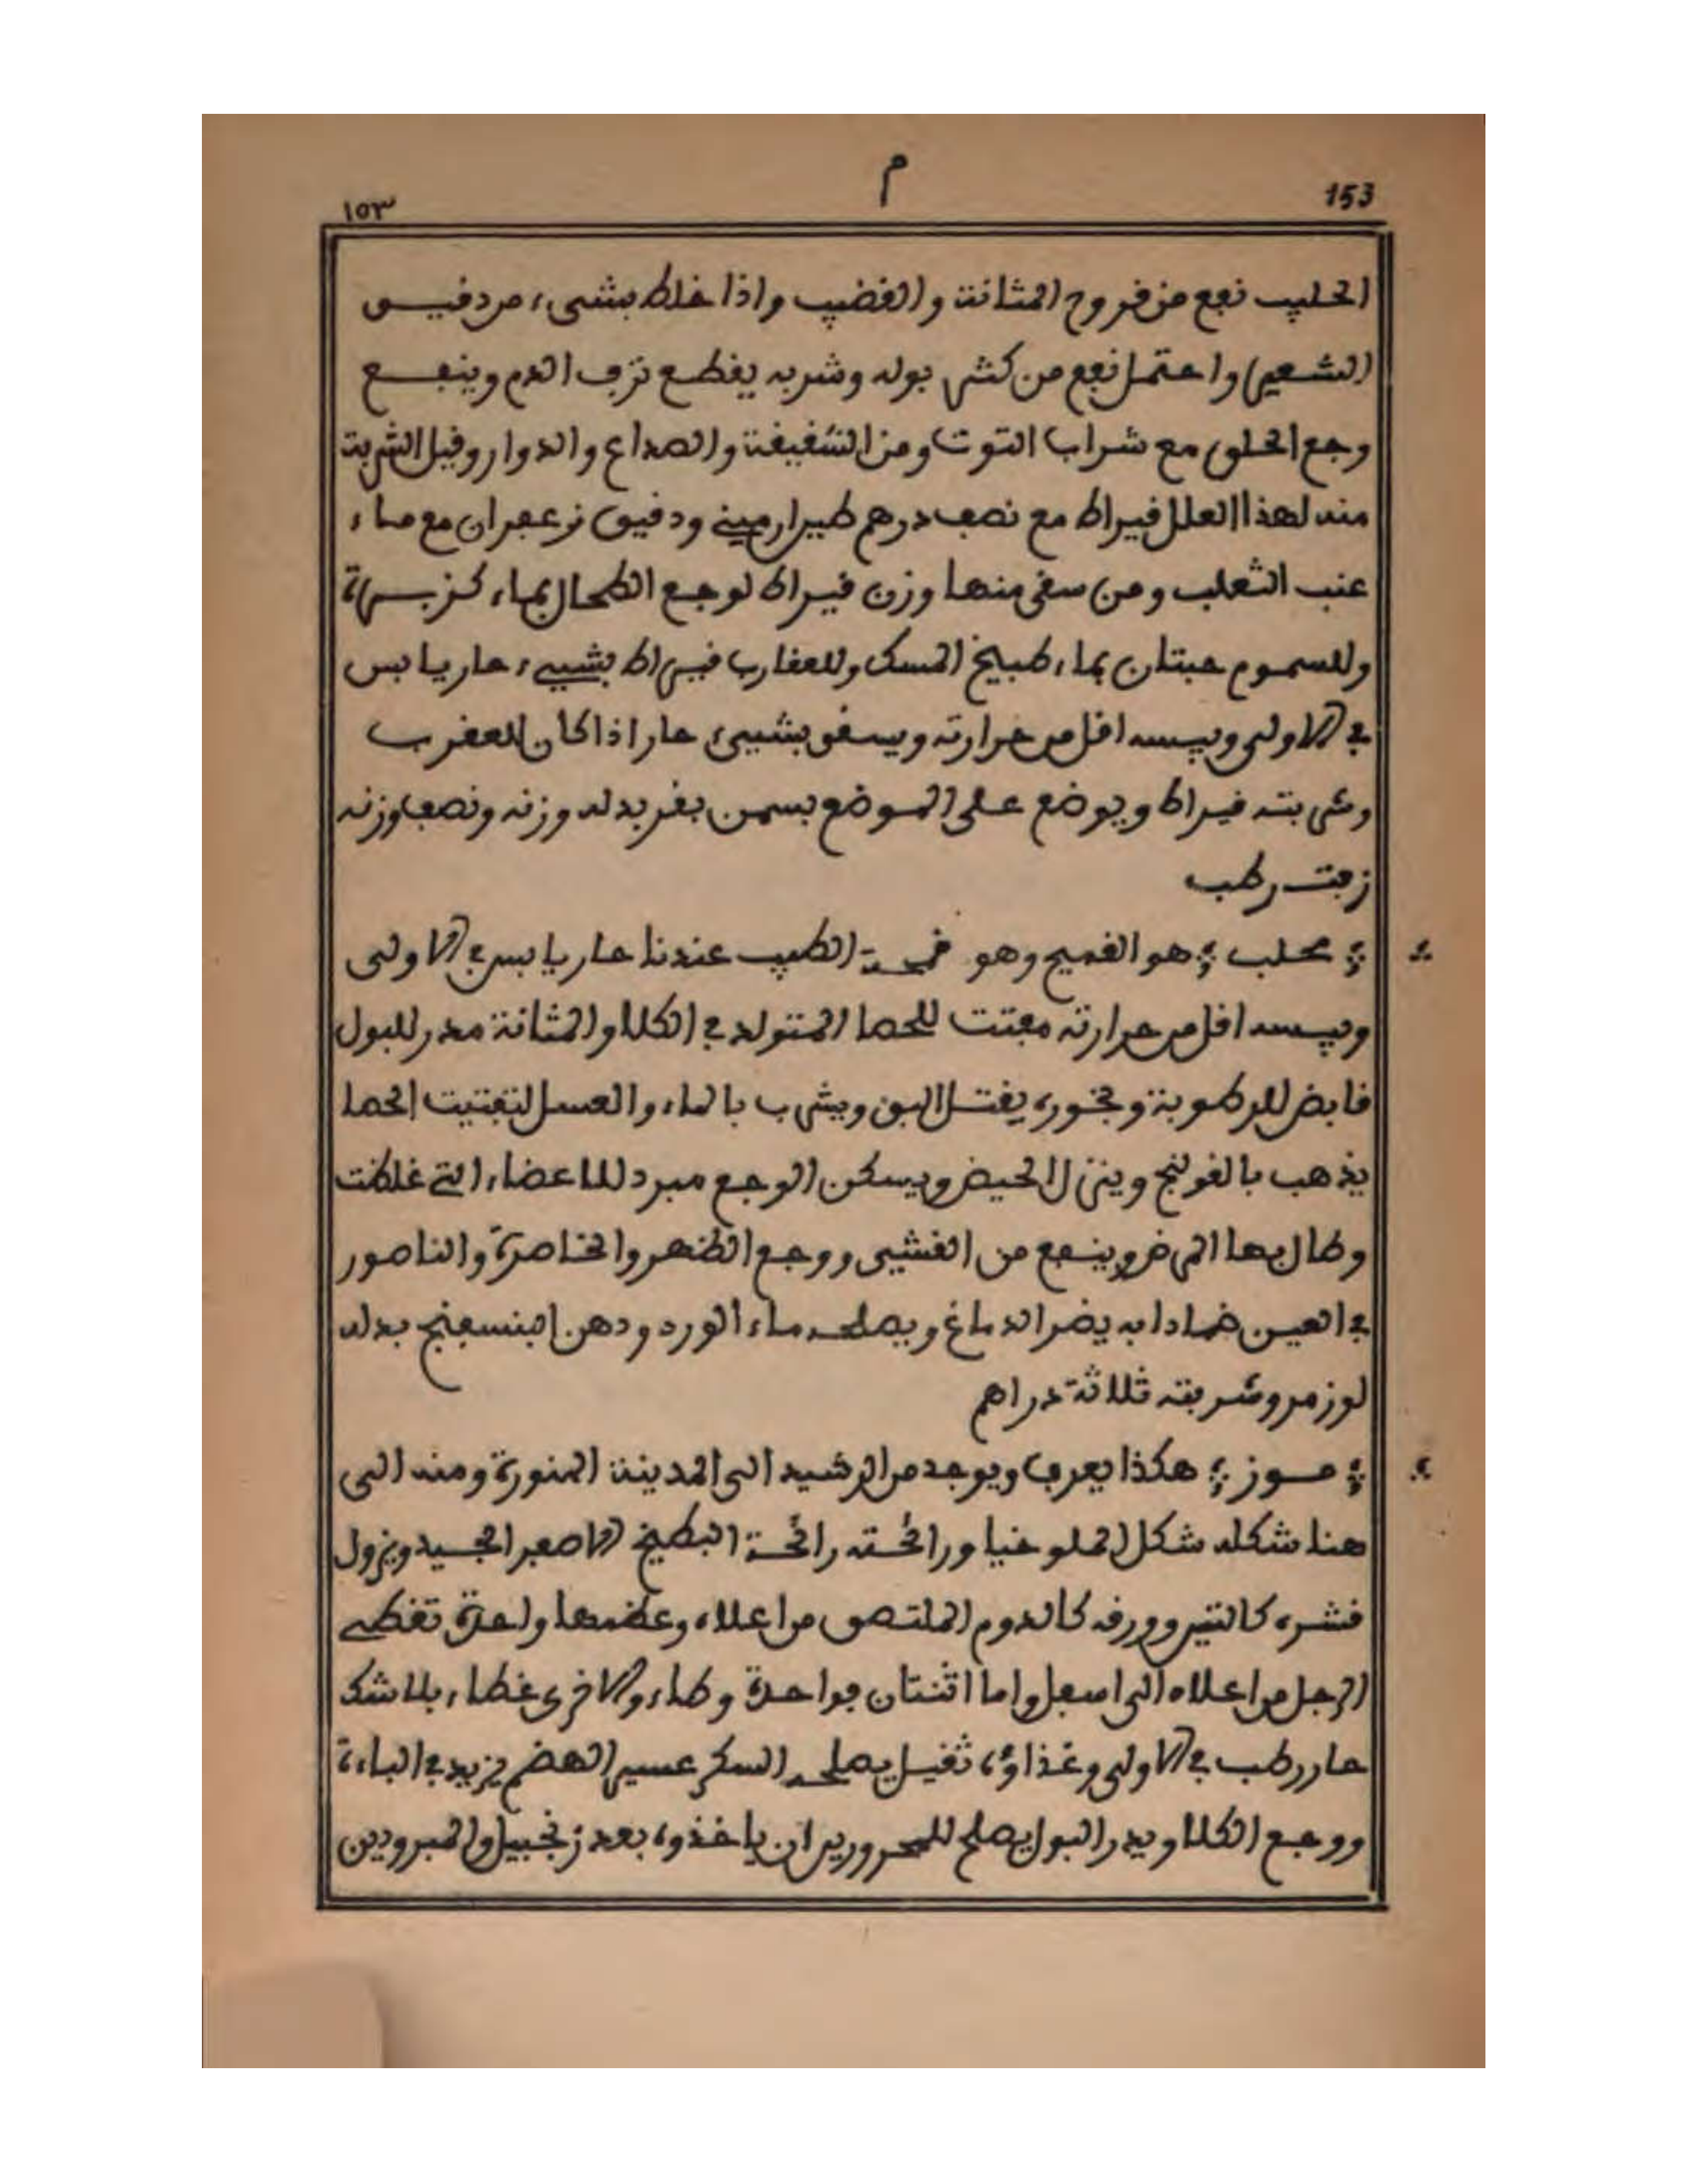 م
153
١٥٣
الحليب نفع من قروح المثانة والقضيب واذا خلط بشيء من دقيق
الشعير واحتمل نفع من كثر بوله وشربه يقطع نزف الدم وينفع
وجع الحلق مع شراب التوت ومن الشقيقة والصداع والدوار وقيل الشربة
منه لهذا العلل قيراط مع نصف درهم طير ارميني ودقيق زعفران مع ماء
عنب الثعلب ومن سقى منها وزن قيراط لوجع الطحال بماء كزبرة
وللسموم حبتان بماء طبيخ المسك وللعقارب قيراط بشيء حار يابس
في الاولى ويبسه اقل من حرارته ويسقى بشيء حار اذا كان للعقرب
وشربته قيراط ويوضع على الموضع بسمن بقر بدله وزنه ونصف وزنه
زفت رطب
؞ محلب ؞ هو القميح وهو قمحة الطيب عندنا حار يابس في الاولى
ويبسه اقل من حرارته مفتت للحصا المتولد في الكلا والمثانة مدر للبول
قابض للرطوبة وبخوره يقتل البق ويشرب بالماء والعسل لتفتيت الحصا
يذهب بالقولنج وينزل الحيض ويسكن الوجع مبرد للاعضاء التي غلظت
وطال بها المرض وينفع من الغشي ووجع الظهر والخاصرة والناصور
في العين ضمادا به يضر الدماغ ويصلحه ماء الورد ودهن البنسفنج بدله
لوز مر وشربته ثلاثة دراهم
؞ موز ؞ هكذا يعرف ويوجد من الرشيد الى المدينة المنورة ومنه الى
هنا شكله شكل الملوخيا ورائحته رائحة البطيخ الاصفر الجيد ويزول
قشره كالتين وورقه كالدوم الملتصق من اعلاه وعظمها واحدة تغطي
الرجل من اعلاه الى اسفل واما اثنتان فواحدة وطاء والاخرى غطاء بلا شك
حار رطب في الاولى وغذاؤه ثقيل يصلحه السكر عسير الهضم يزيد في الباءة
ووجع الكلا ويدر البول يصلح للمحرورين ان ياخذوه بعد زنجبيل والمبرودين